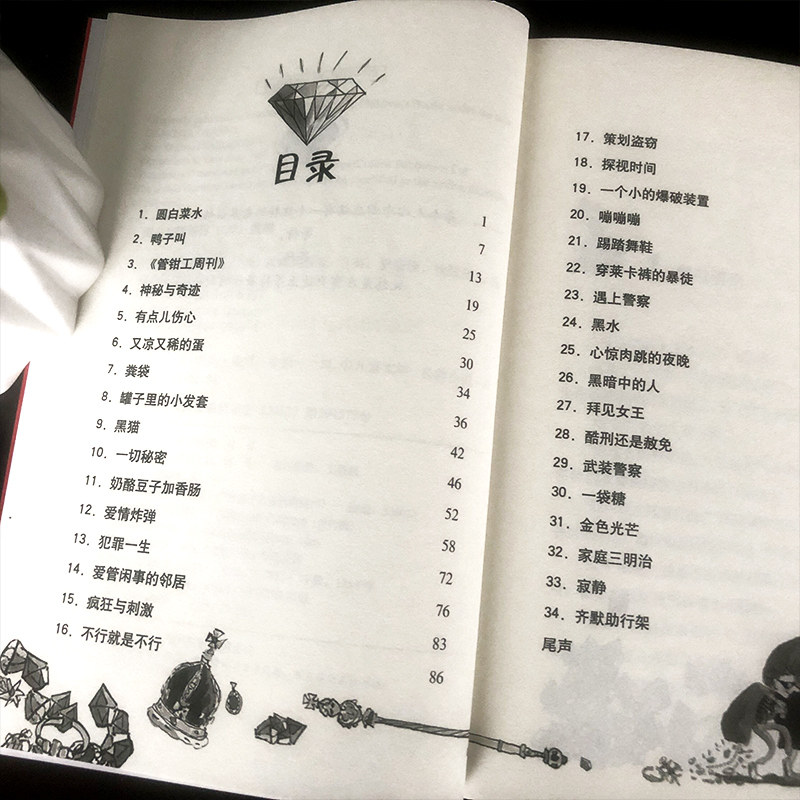 目录
1. 圆白菜水 1
2. 鸭子叫 7
3.《管钳工周刊》 13
4. 神秘与奇迹 19
5. 有点儿伤心 25
6. 又凉又稀的蛋 30
7. 粪袋 34
8. 罐子里的小发套 36
9. 黑猫 42
10. 一切秘密 46
11. 奶酪豆子加香肠 52
12. 爱情炸弹 58
13. 犯罪一生 72
14. 爱管闲事的邻居 76
15. 疯狂与刺激 83
16. 不行就是不行 86
17. 策划盗窃
18. 探视时间
19. 一个小的爆破装置
20. 嘣嘣嘣
21. 踢踏舞鞋
22. 穿莱卡裤的暴徒
23. 遇上警察
24. 黑水
25. 心惊肉跳的夜晚
26. 黑暗中的人
27. 拜见女王
28. 酷刑还是赦免
29. 武装警察
30. 一袋糖
31. 金色光芒
32. 家庭三明治
33. 寂静
34. 齐默助行架
尾声